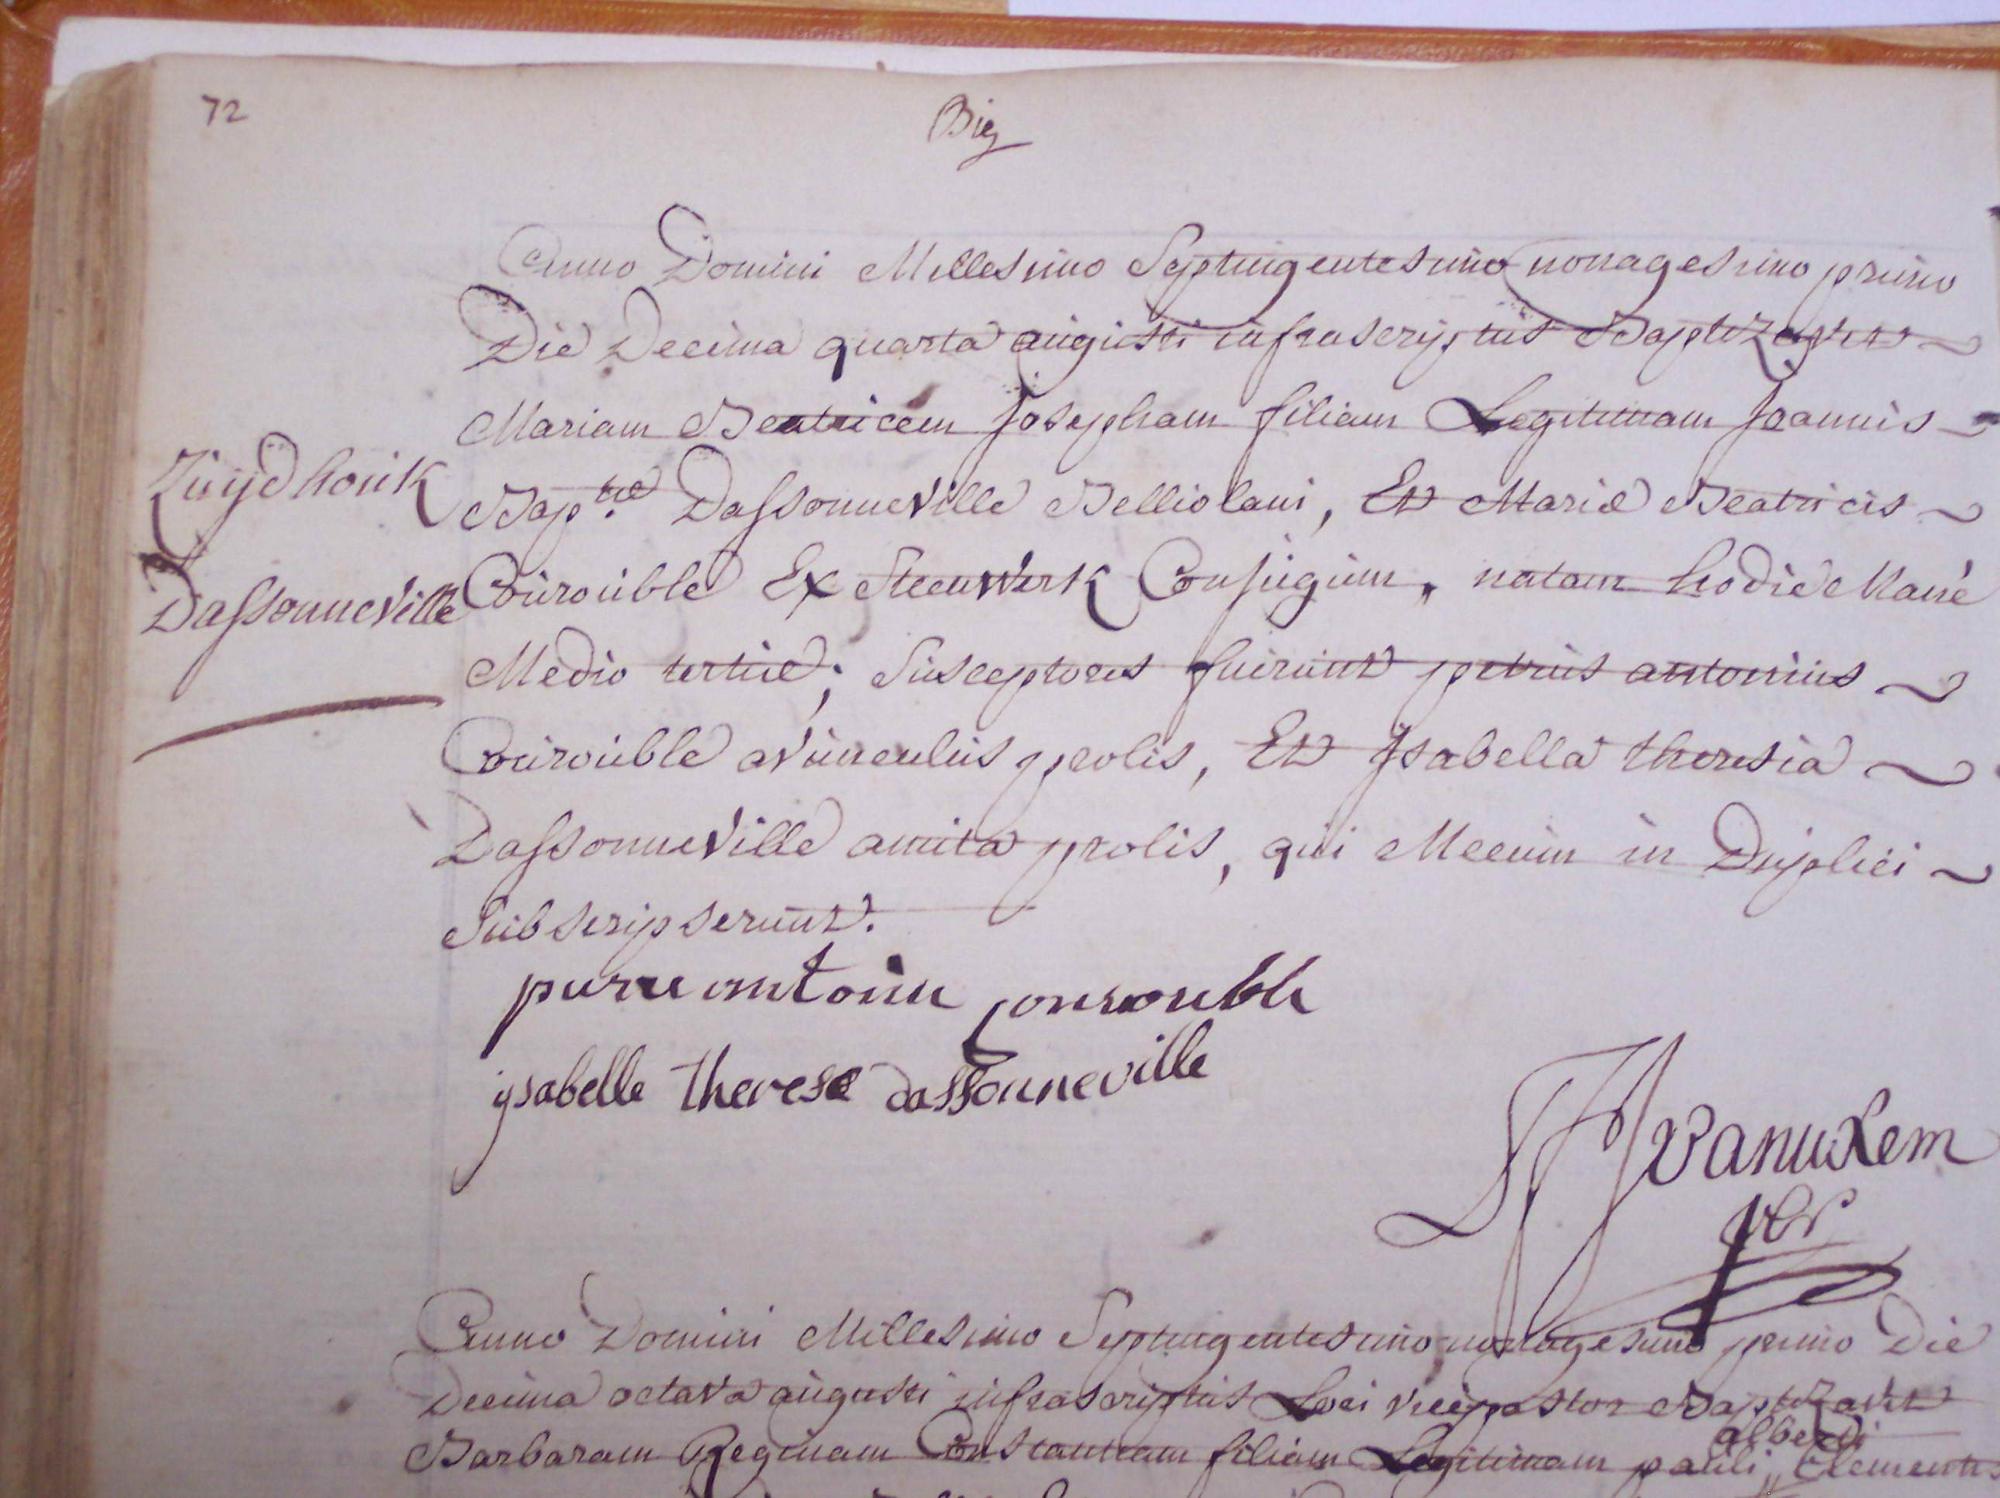 72
Big
Anno Domini Millesimo Septuigentesimo nonagesimo primo
Die Decima quarta augusti infrascriptus Baptizavit
Mariam Beatricem Josepham filiam Legitimam Joannis
Zuydhouk
Bap.tæ Dassonneville Belliolani, Et Mariæ Beatricis
Dassonneville
Courouble Ex Steenwerk Conjugum, natam hodie Manè
Medio tertiæ; Susceptores fuerunt petrus antonius
Courouble avunculus prolis, Et Ysabella theresia
Dassonneville amita prolis, qui Mecum in Duplici
Subscripserunt.
pierre antoine Courouble
ysabelle therese dassonneville
vanuxem
pbr
Anno Domini Millesimo Septuigentesimo nonagesimo primo Die
Decima octava augusti infrascriptus Loci vicepastor Baptizavit
alberti
Barbaram Reginam Constantiam filiam Legitimam pauli,, Clementis